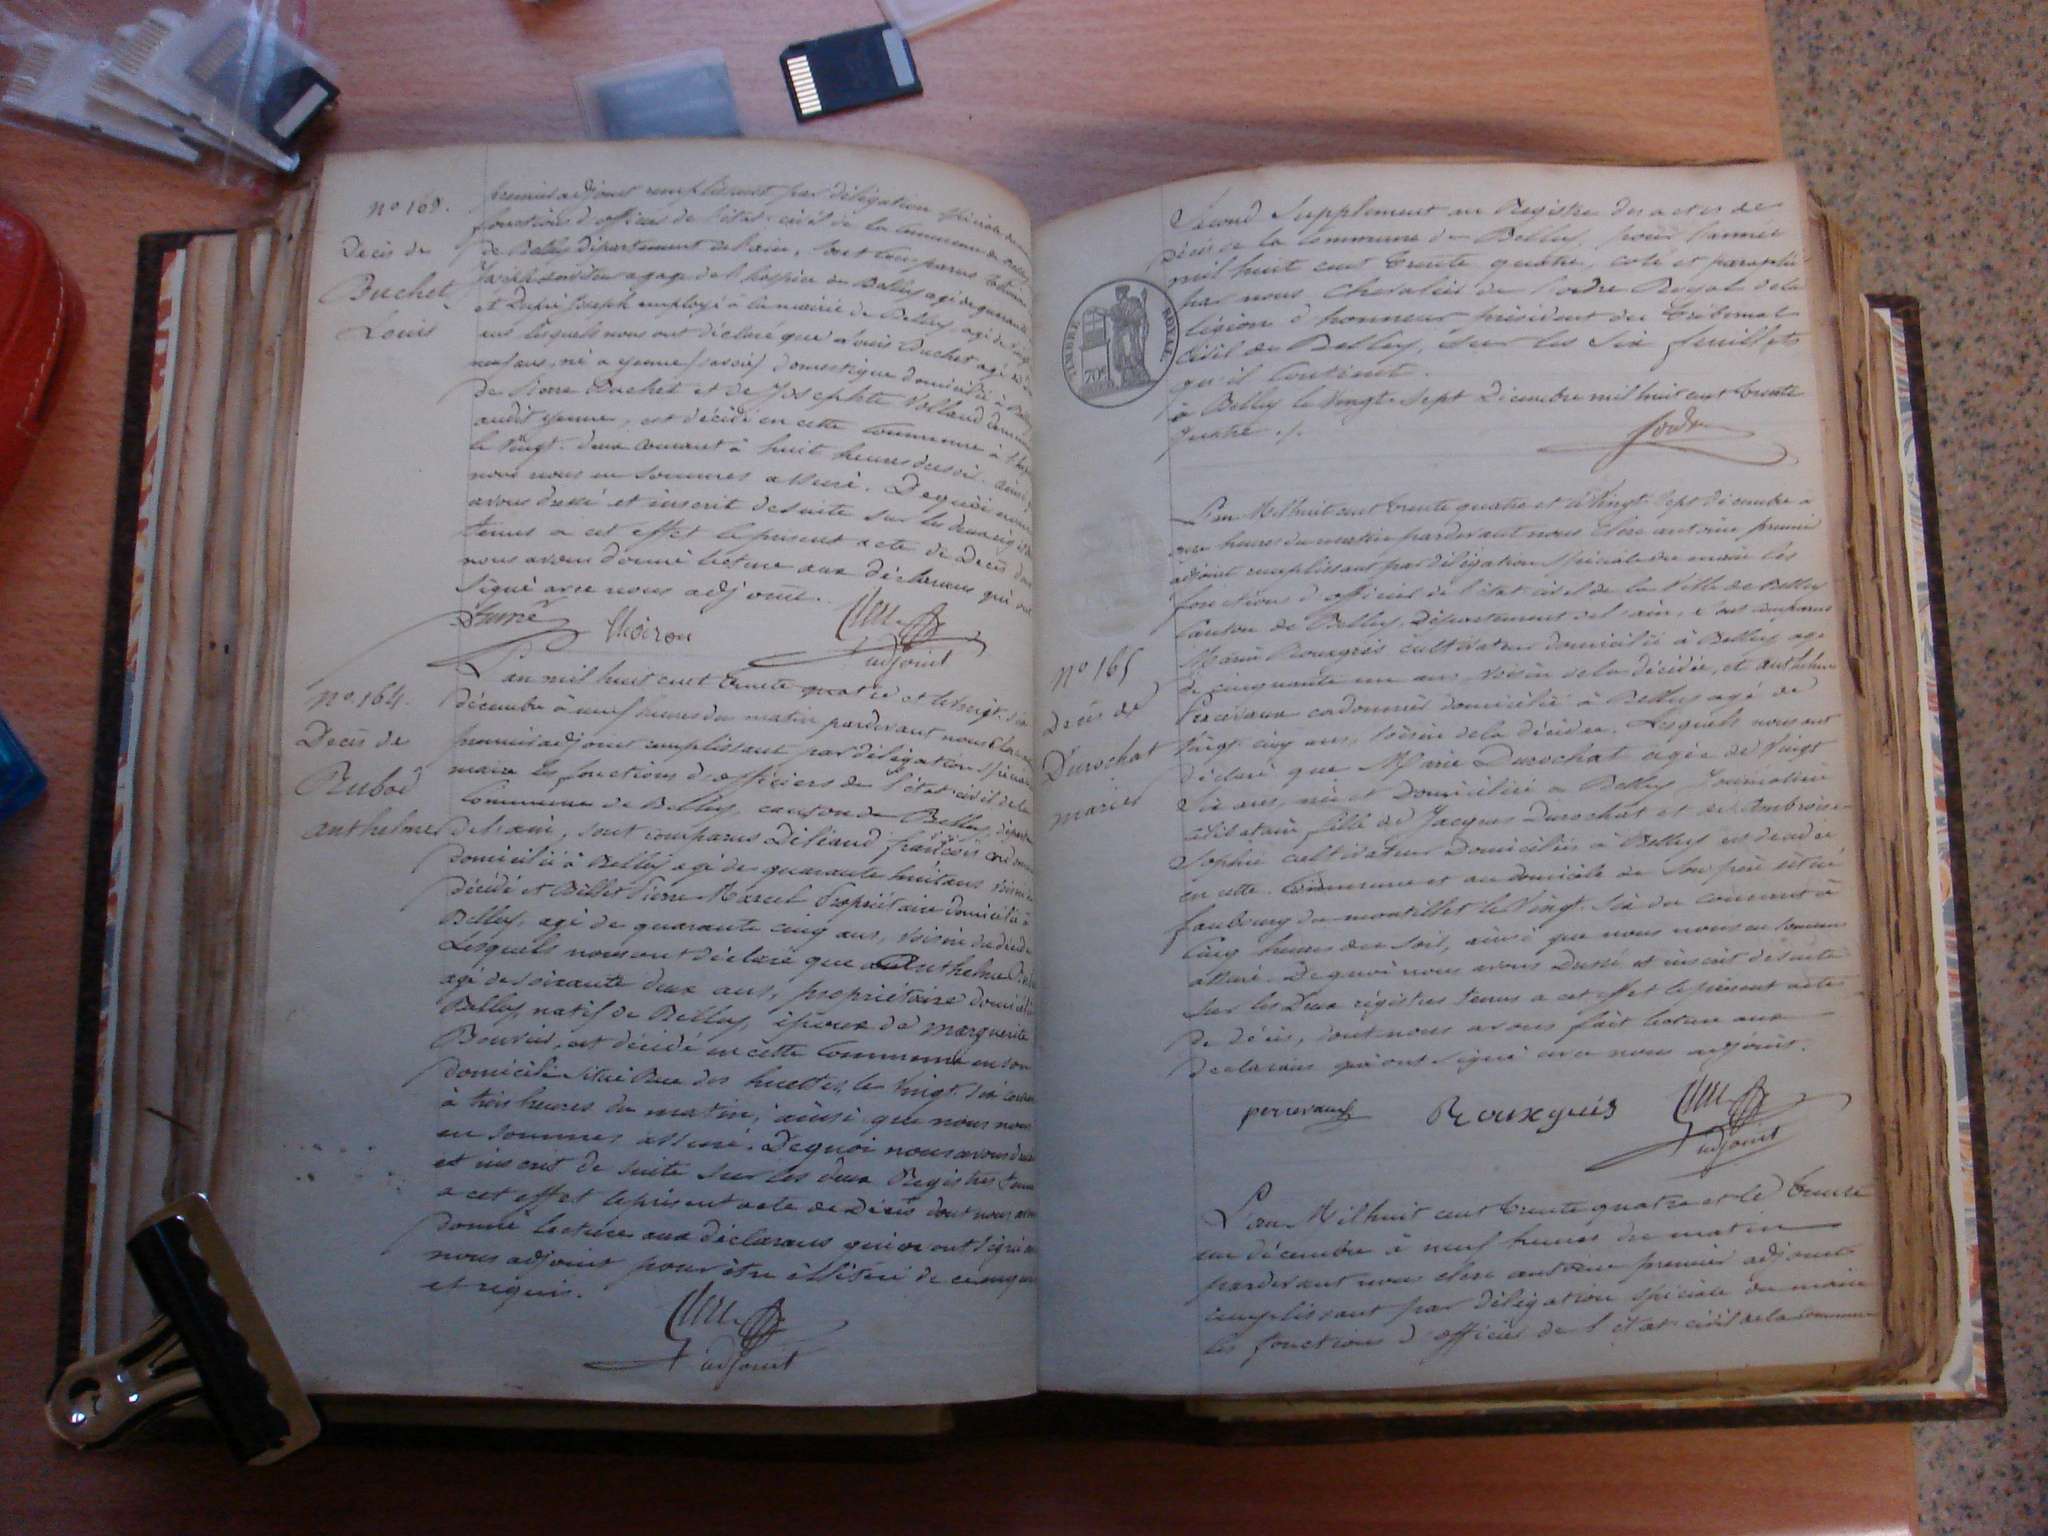 no 163.
Décès de
Buchet
Louis
premier adjoint remplissant par délégation spéciale du
fonctions d'officier de l'état civil de la commune de Belley
de Belley département de l'ain, sont comparus
agage de l'hospice de Belley agé de quarante
et Dupré Joseph employé à la mairie de Belley, agé de
ans lesquels nous ont déclaré que Louis Buchet agé de
neuf ans, né a yenne (savoie) domestique domicilié à Belley
de Pierre Buchet et de Josephte Volland
audit yenne, est décédé en cette Commune à l'hospice
le Vingt-deux courant à huit heures du soir. ainsi
nous nous en sommes assuré. De quoi nous
avons dressé et inscrit de suite sur les deux
tenus a cet effet le présent acte de Décès dont
nous avons donné lecture aux déclarans qui ont
signé avec nous adjoint.
Moiron
adjoint
no. 164.
Decès de
Rubod
anthelme
L'an mil huit cent trente quatre et le vingt-six
décembre à neuf heures du matin pardevant nous
premier adjoint remplissant par délégation spéciale
maire les fonctions d'officiers de l'état civil de la
Commune de Belley, canton de Belley, départ
de l'ain, sont comparus françois
domicilié à Belley agé de quarante huit ans voisin
décédé et Billet Pierre Marcel Propriétaire domicilié à
Belley, agé de quarante cinq ans, voisin du décédé
Lesquels nous ont déclaré que Anthelme
agé de soixante deux ans, propriétaire domicilié
Belley, natif de Belley, époux de marguerite
Bouvier, est décédé en cette Commune en son
domicile situé Rue des huettes, le Vingt-six courant
à trois heures du matin, ainsi que nous nous
en sommes assuré. De quoi nous avons dressé
et inscrit de suite sur les deux Registres tenus
a cet effet le présent acte de Décès dont nous avons
donné lecture aux déclarans qui ont signé
nous adjoint pour être
et requis.
adjoint
Second Supplement au Registre des actes de
Décès de la Commune de Belley, pour l'année
mil huit cent trente quatre, coté et paraphé
par nous Chevalier de l'ordre Royal de la
légion d'honneur président du Tribunal
Civil de Belley, sur les six feuillets
qu'il Contient.
à Belley le Vingt-Sept Décembre mil huit cent trente
quatre ./.
TIMBRE ROYAL
70c
no 165
Décès de
Durochat
marie
L'an Mil huit cent trente quatre et le Vingt-Sept décembre à
onze heures du matin pardevant nous Clerc antoine premier
adjoint remplissant par délégation Spéciale du maire les
fonctions d'officier de l'état civil de la Ville de Belley
Canton de Belley, Département de l'ain, sont comparus
Marin Rouxgrés cultivateur domicilié à Belley agé
de cinquante un ans, voisin de la décédée, et anthelme
Percevaux cordonnier domicilié à Belley agé de
Vingt-cinq ans, voisin de la décédée. Lesquels nous ont
déclaré que Marie Durochat agée de Vingt
Six ans, née et Domiciliée a Belley Journalière
célibataire fille de Jacques Durochat et de Ambroise
Sophie cultivateurs Domiciliés à Belley est décédée
en cette Commune et au domicile de Son père situé
faubourg du montillet le Vingt-Six du courant à
Cinq heures du soir, ainsi que nous nous en sommes
assuré. De quoi nous avons dressé et inscrit de suite
sur les deux régistres tenus a cet effet le présent acte
de décès, dont nous avons fait lecture aux
declarans qui ont signé avec nous adjoint.
percevaux Rouxgrés
adjoint
L'an Mil huit cent trente quatre et le trente
un décembre à neuf heures du matin
pardevant nous clerc antoine premier adjoint
remplissant par délégation spéciale du maire
les fonctions d'officier de l'état civil de la Commune